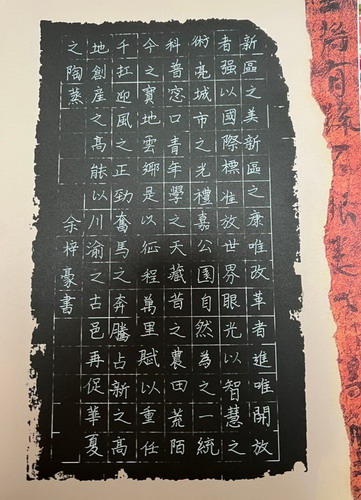 新區之美新區之康唯改革者進唯開放
者强以國際標准放世界眼光以智慧之
術亮城市之光禮嘉公園自然為之一統
科普窓口青年學之天藏昔之農田荒陌
今之寶地雲鄉是以征程萬里賦以重任
千扛迎風之正勁奮馬之奔騰占新之高
地創産之高能以川渝之古邑再促華夏
之陶蒸
余梓豪書